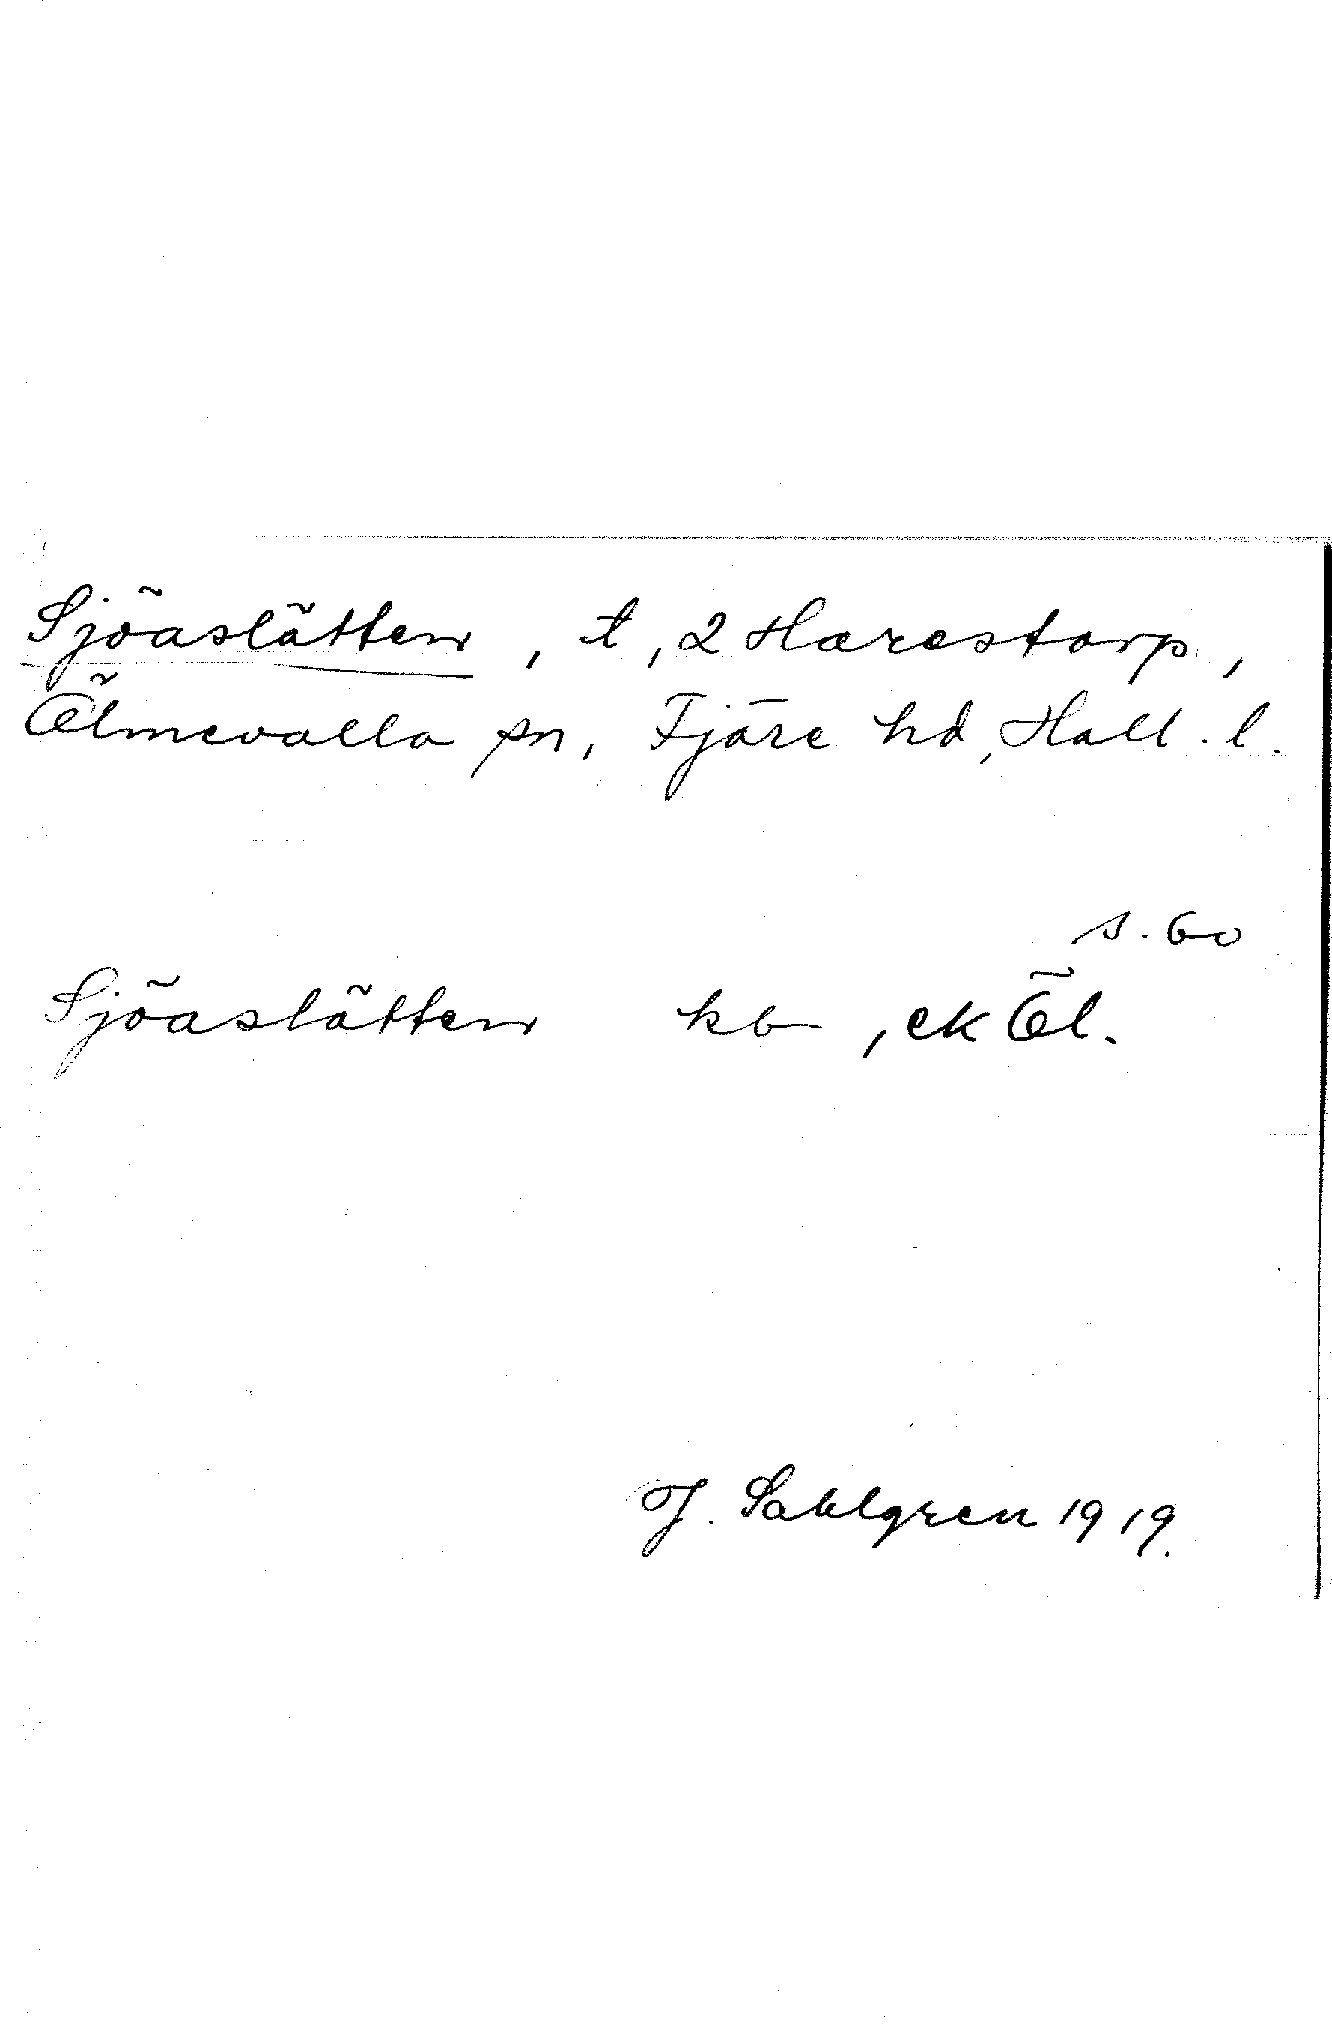 Sjöaslätten, t, 2 Harestorp,
Ölmevalla sn, Fjäre hd, Hall. l.
s. 60
Sjöaslätten kb, ek Öl.
J. Sahlgren 1919.